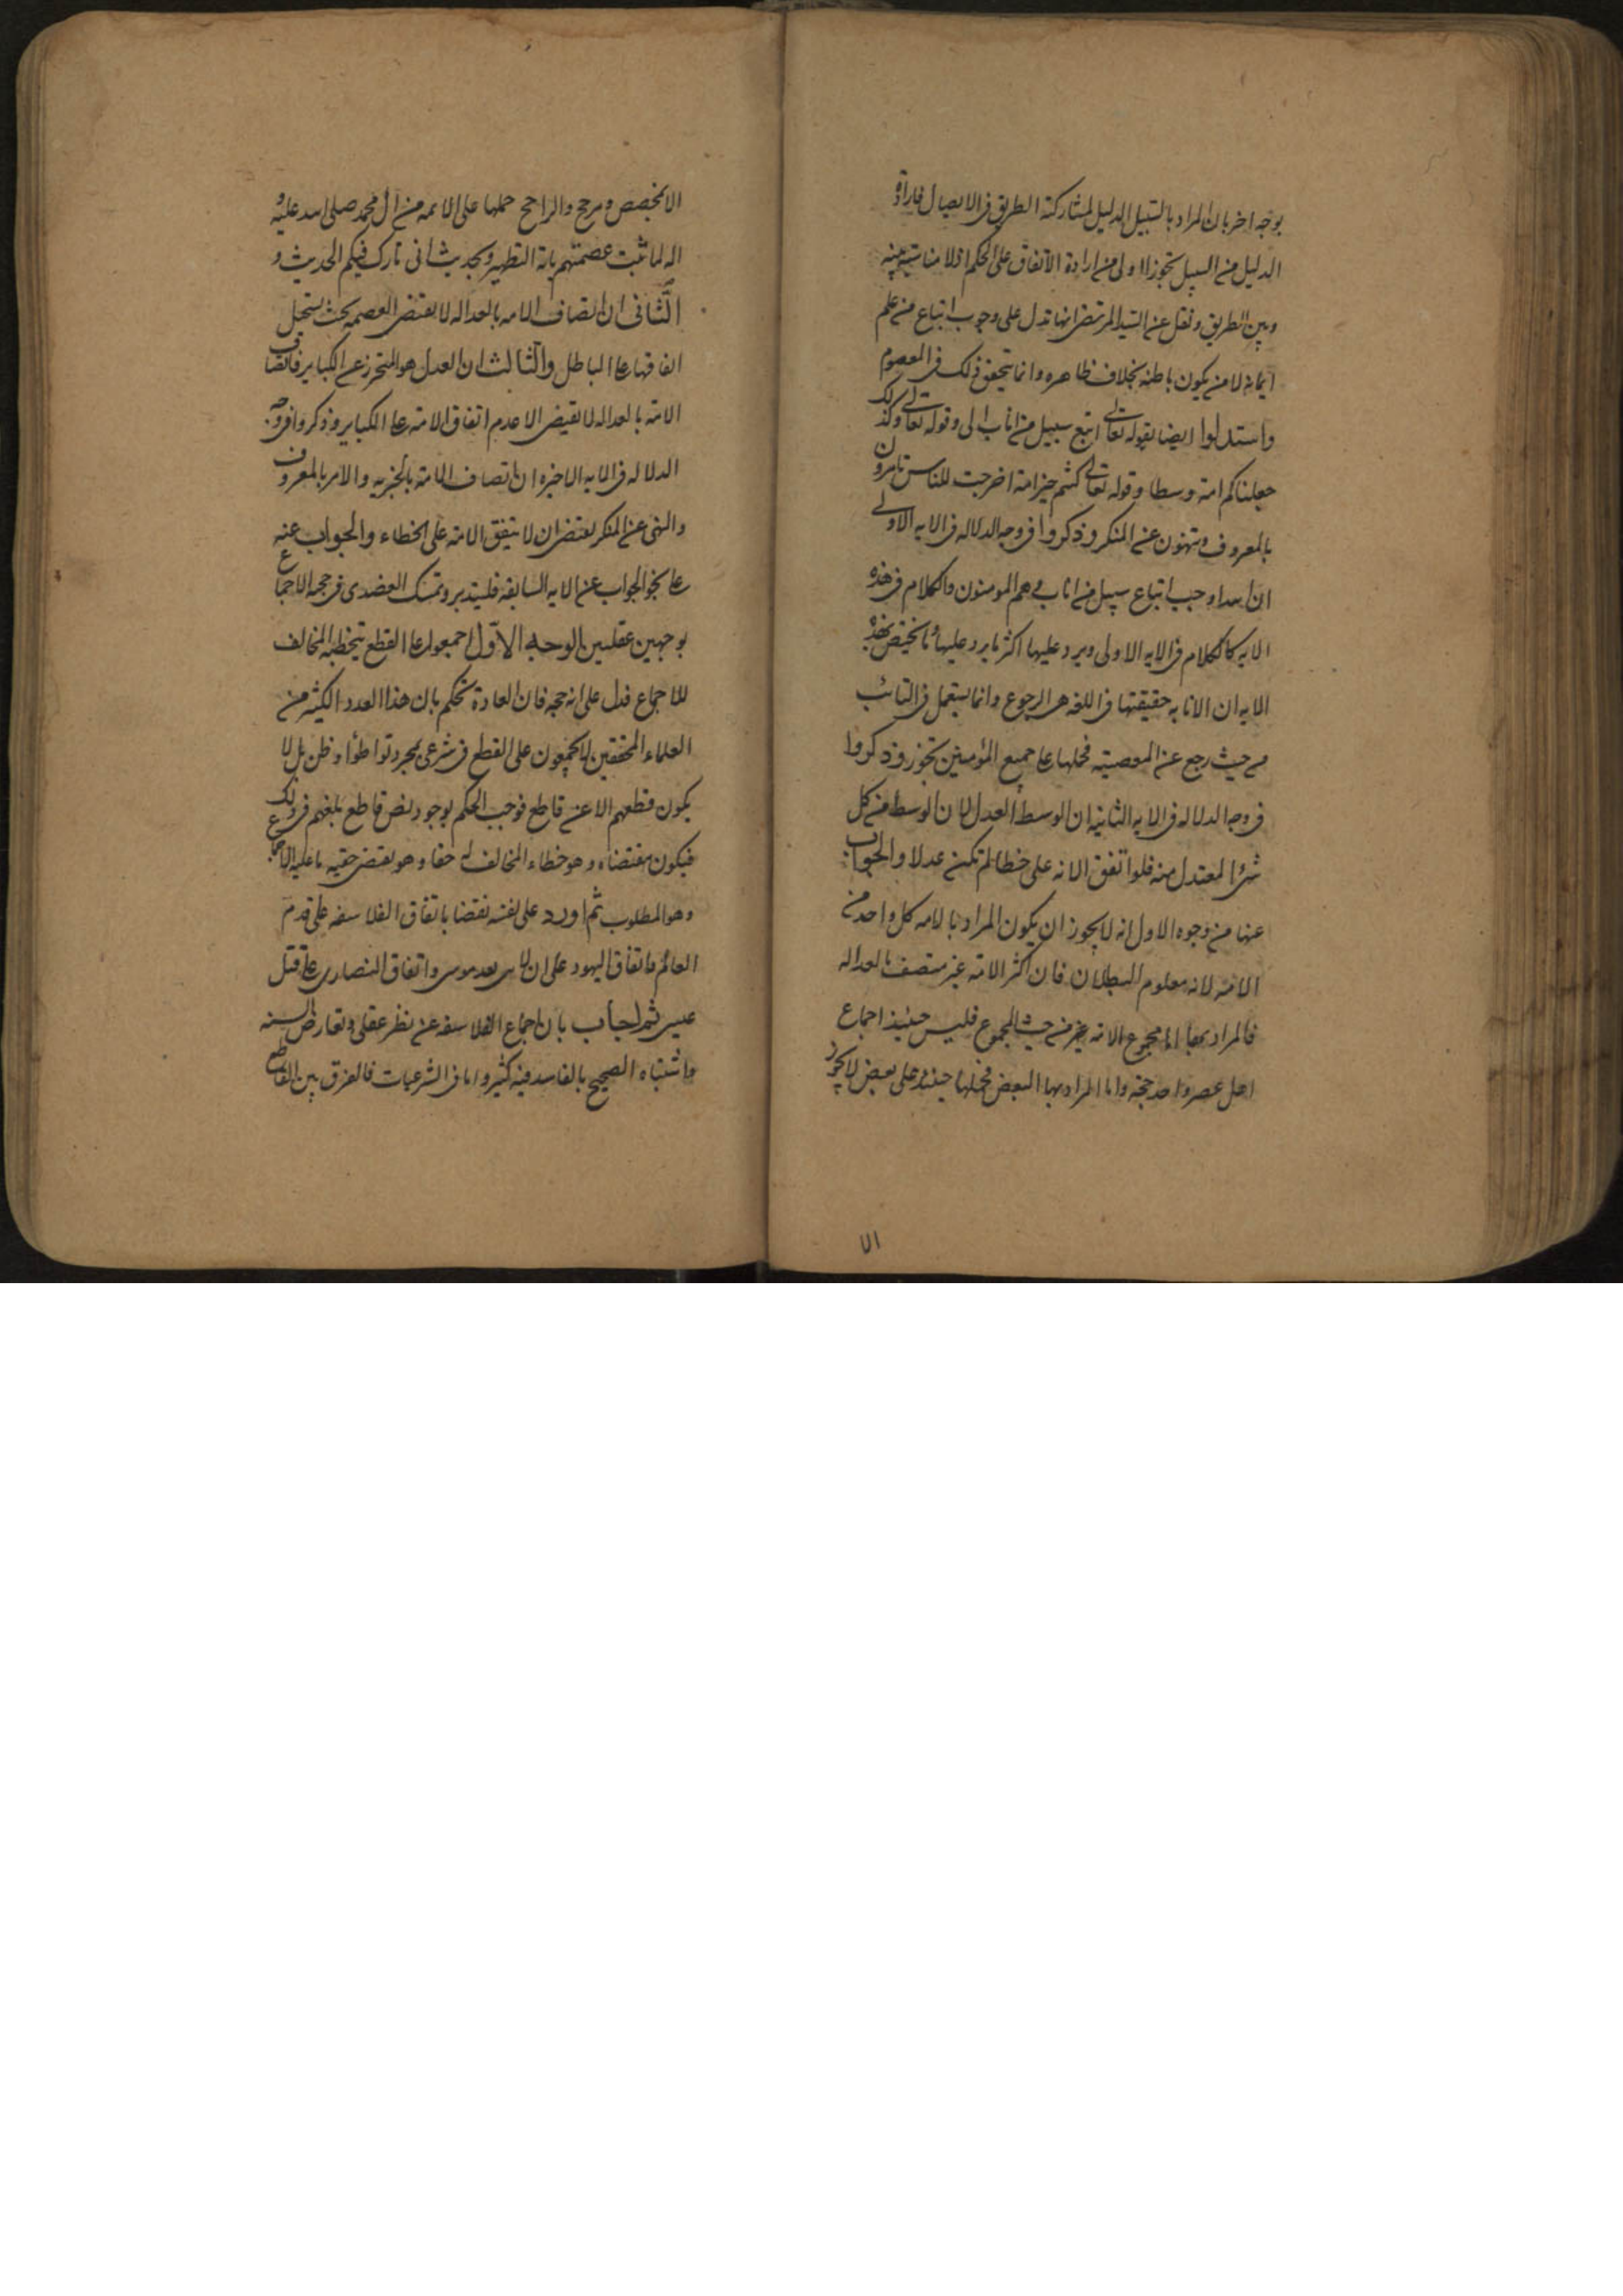 بوجه اخر بان المراد بالسبيل الدليل لمشاركته الطريق فى الايصال فارادة
الدليل من السبيل تجوزا اولى من ارادة الاتفاق على الحكم اذ لا مناسبة بينه
وبين الطريق ونقل عن السيد المرتضى انها تدل على وجوب اتباع من علم
ايمانه لا من يكون باطنه بخلاف ظاهره وانما يتحقق ذلك فى المعصوم
واستدلوا ايضا بقوله تعالى اتبع سبيل من اناب الى وقوله تعالى وكذلك
جعلناكم امة وسطا وقوله تعالى كنتم خير امة اخرجت للناس تامرون
بالمعروف وتنهون عن المنكر وذكروا فى وجه الدلاله فى الايه الاولى
ان الله اوجب اتباع سبيل من اناب وهم المومنون والكلام فى هذه
الايه كالكلام فى الايه الاولى ويرد عليها اكثر ما يرد عليها وما يختص بهذه
الايه ان الانابه حقيقتها فى اللغه هى الرجوع وانما يستعمل فى التائب
من حيث رجع عن المعصيته فحملها على جميع المؤمنين تجوز وذكروا
فى وجه الدلاله فى الايه الثانيه ان الوسط العدل لان الوسط من كل
شئ المعتدل منه فلو اتفق الامة على خطا لم تكن عدلا والجواب
عنها من وجوه الاول انه لا يجوز ان يكون المراد بالامه كل واحد من
الامته لانه معلوم البطلان فان اكثر الامته غير متصف بالعداله
فالمراد بها اما مجموع الامة من حيث المجموع فليس حينئذ اجماع
اهل عصر واحد حجة واما المراد بها البعض فحملها حينئذ على بعض لا يجوز
الا
الا بمخصص ومرجح والراجح حملها على الائمه من ال محمد صلى الله عليه و
اله لما ثبت عصمتهم باية التطهير وبحديث انى تارك فيكم الحديث و
الثانى ان اتصاف الامه بالعداله لا يقتضى العصمه بحيث يستحيل
اتفاقها على الباطل والثالث ان العدل هو المتحرز عن الكباير فاتصاف
الامة بالعداله لا يقتضى الا عدم اتفاق الامته على الكباير وذكروا فى وجه
الدلاله فى الايه الاخيره ان اتصاف الامة بالخيريه والامر بالمعروف
والنهى عن المنكر يقتضى ان لا يتفق الامة على الخطاء والجواب عنه
على نحو الجواب عن الايه السابقه فليتدبر وتمسك العضدى فى حجيه الاجماع
بوجهين عقليين الوجه الاول اجمعوا على القطع بتخطئه المخالف
للاجماع فدل على انه حجه فان العادة تحكم بان هذا العدد الكثير من
العلماء المحققين لا يجمعون على القطع فى شرعى بمجرد تواطؤ او ظن بل لا
يكون قطعهم الا عن قاطع فوجب الحكم بوجود نص قاطع بلغهم فى ذلك
فيكون مقتضاه وهو خطاء المخالف له حقا وهو يقتضى حقيه ما عليه الاجماع
وهو المطلوب ثم اورد على نفسه نقضا باتفاق الفلاسفه على قدم
العالم واتفاق اليهود على ان لا نبى بعد موسى واتفاق النصارى على قتل
عيسى ثم اجاب بان اجماع الفلاسفه عن نظر عقلى وتعارض الشبه
واشتباه الصحيح بالفاسد فيه كثير واما فى الشرعيات فالفرق بين القاطع